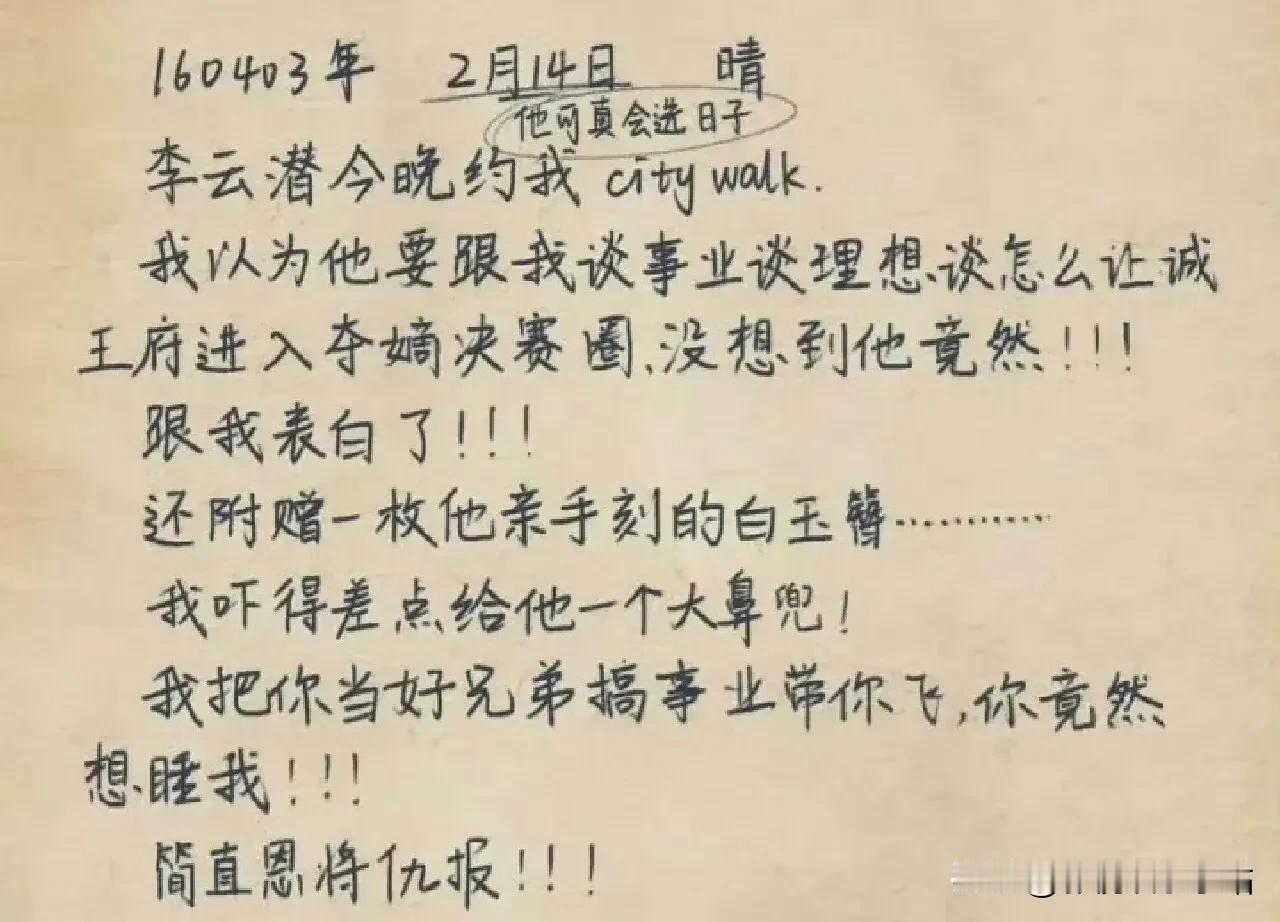 160403年 2月14日 晴
他可真会选日子
李云潜今晚约我 city walk.
我以为他要跟我谈事业谈理想谈怎么让诚
王府进入夺嫡决赛圈,没想到他竟然!!!
跟我表白了!!!
还附赠一枚他亲手刻的白玉簪…………
我吓得差点给他一个大鼻兜!
我把你当好兄弟搞事业带你飞,你竟然
想睡我!!!
简直恩将仇报!!!